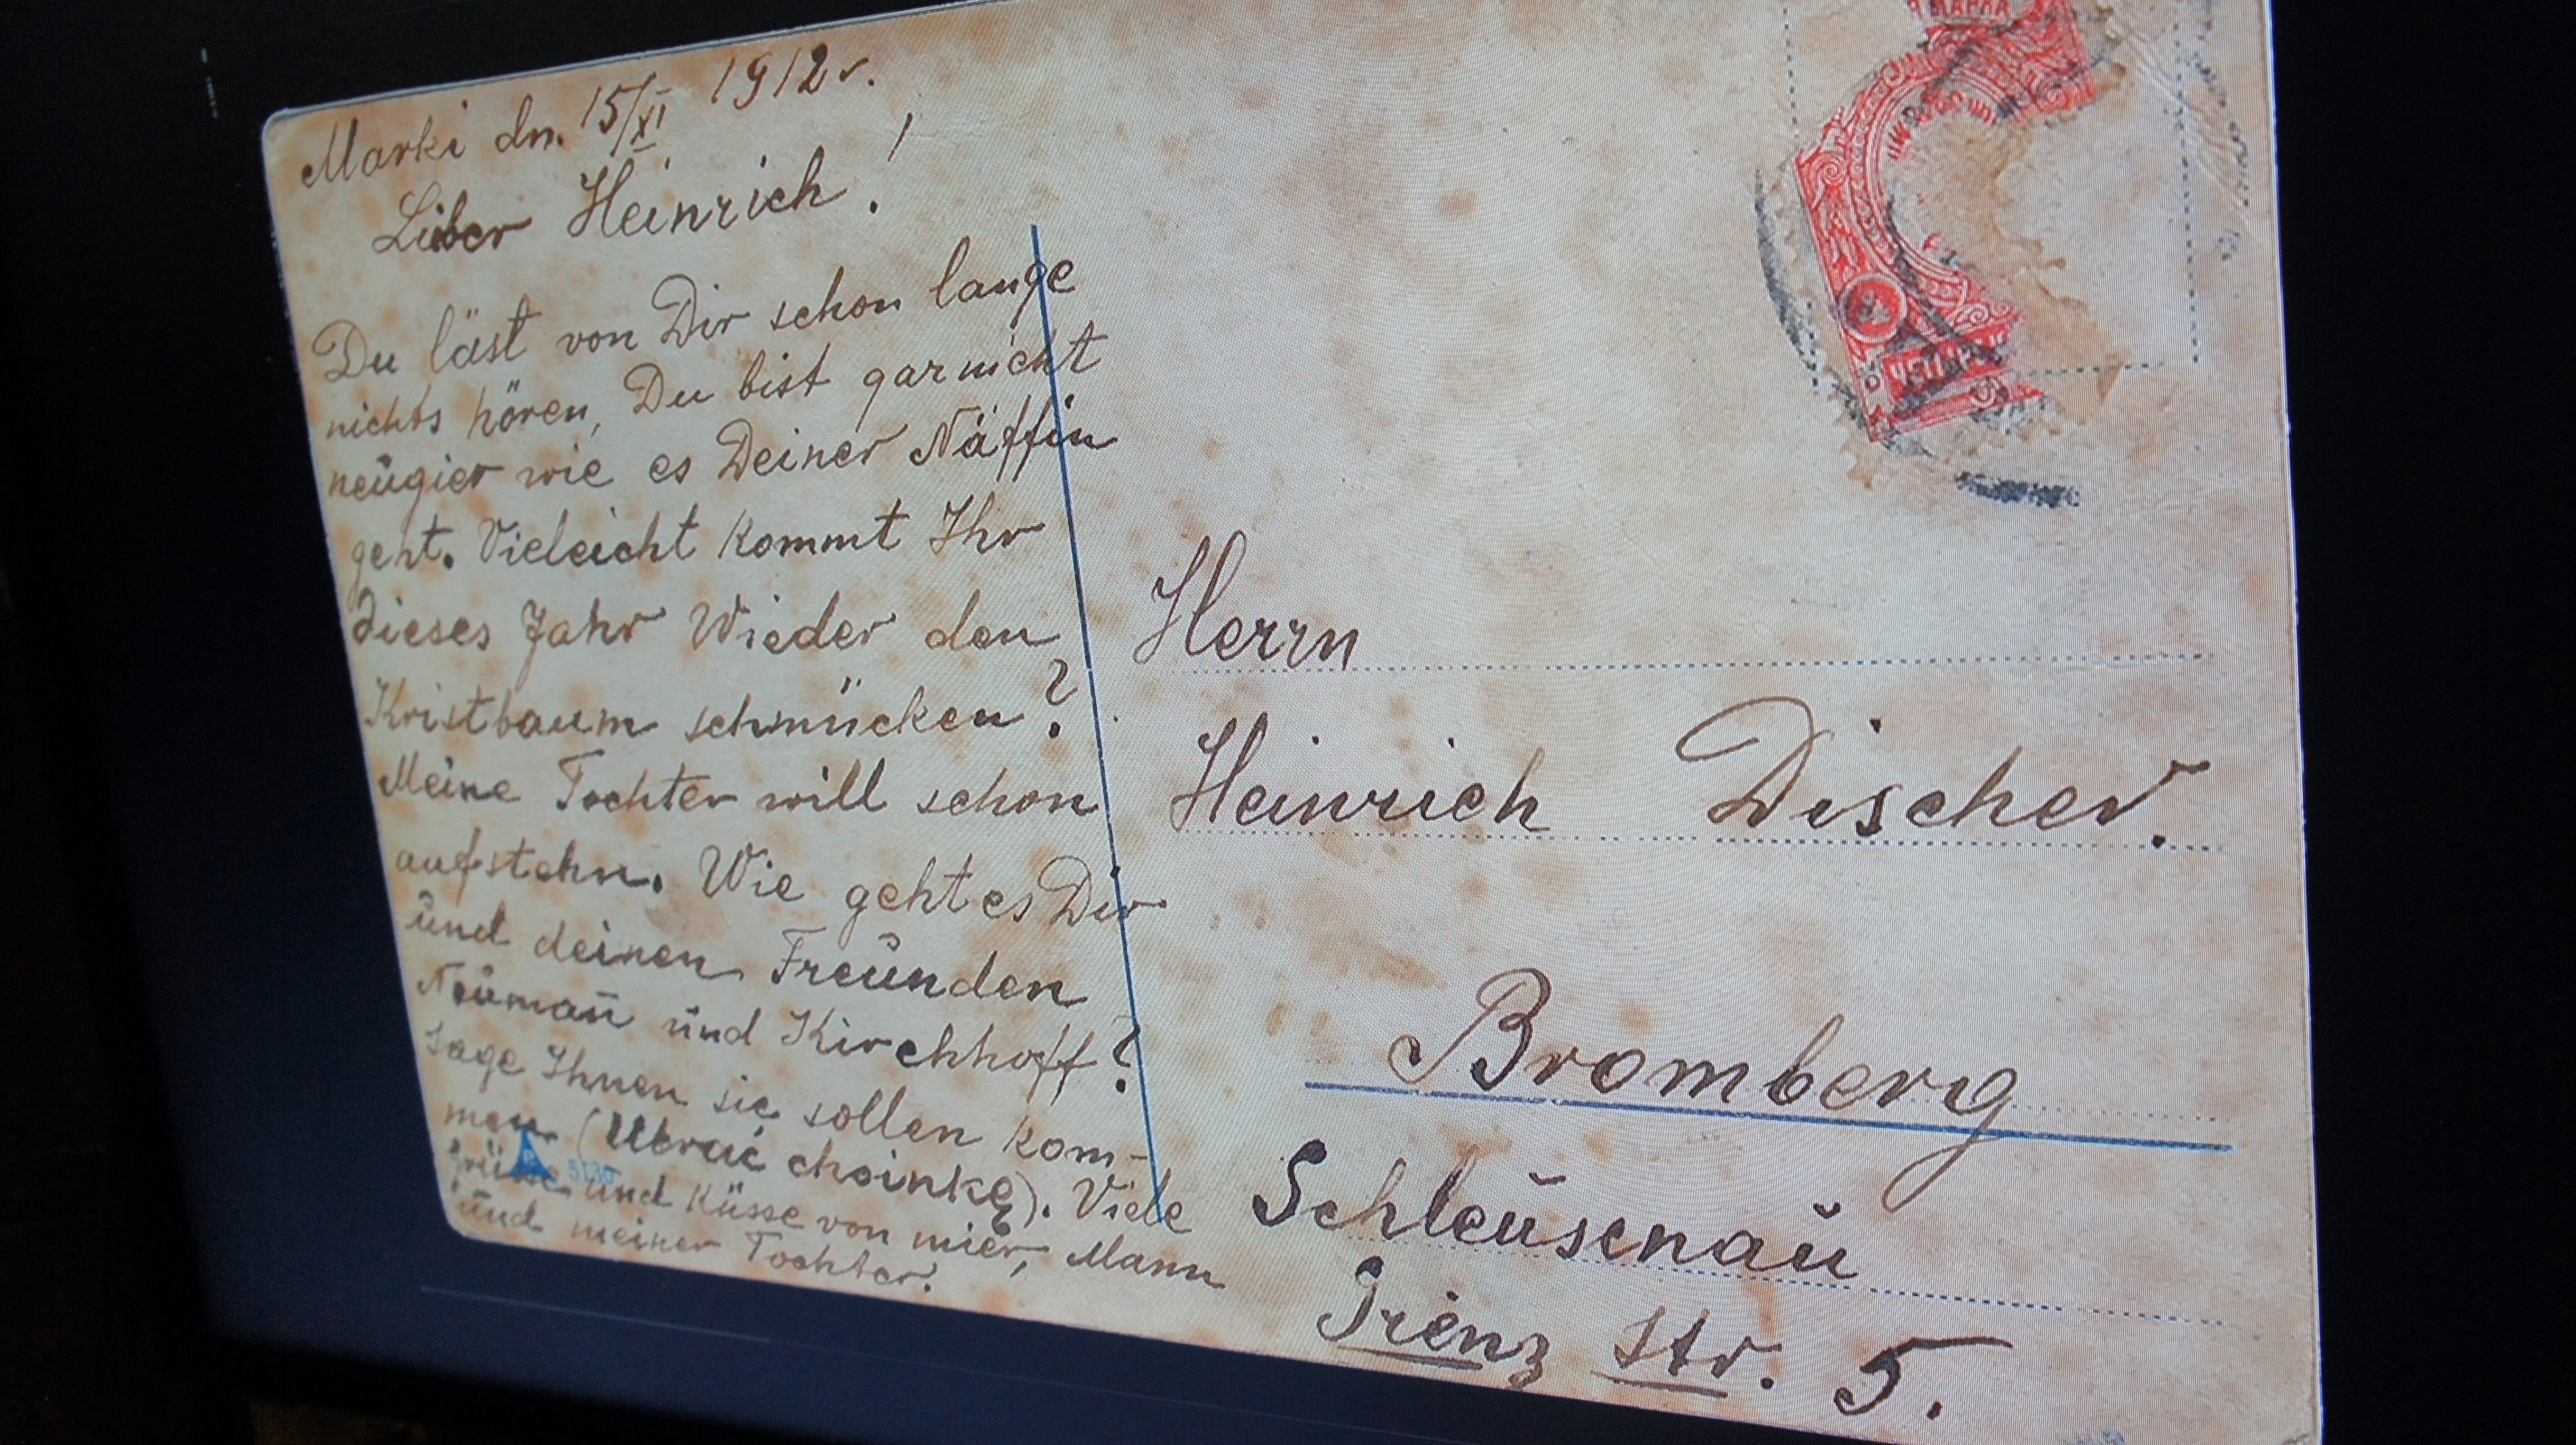 Marki dn. 15/XI 1912 r.
Liber Heinrich!
Du läst von Dir schon lange
nichts hören, Du bist garnicht
neŭgier wie es Deiner Näffin
geht. Vieleicht kommt Ihr
dieses Jahr Wieder den
Kristbaum schmücken?
Meine Tochter will schon
aufstehn. Wie geht es Dir
ŭnd deinen Freŭnden
Neŭman̄ ŭnd Kirchhoff?
sage Ihnen sie sollen kom-
men (Ubrać choinkę). Viele
Grüsse ŭnd Küsse von mier, Mann
ŭnd meiner Tochter.
5136
МАРКА
Herrn
Heinrich Discher.
Bromberg
Schleŭsenaŭ
Grenz Str. 5.